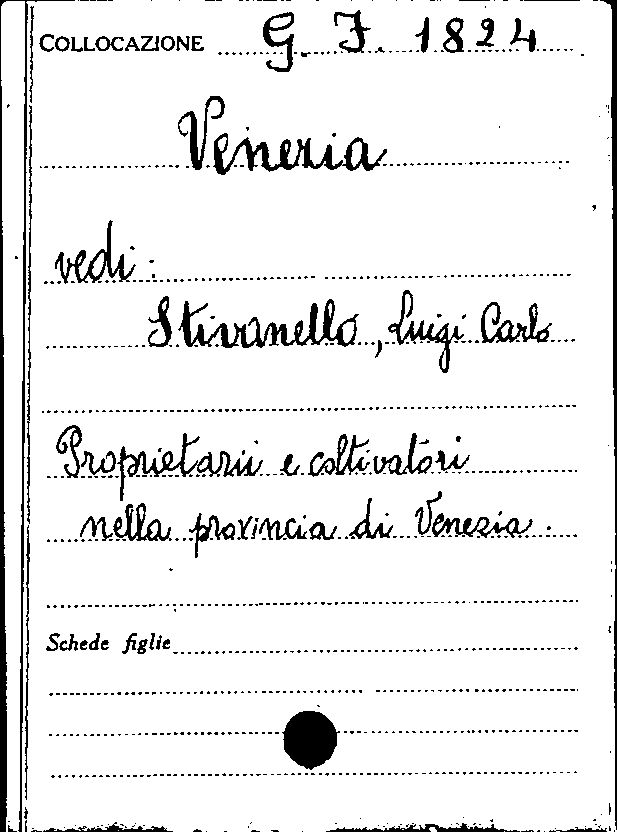 COLLOCAZIONE G. F. 1824
Venezia
vedi:
Stivanello, Luigi Carlo
Proprietarii e coltivatori
nella provincia di Venezia.
Schede figlie